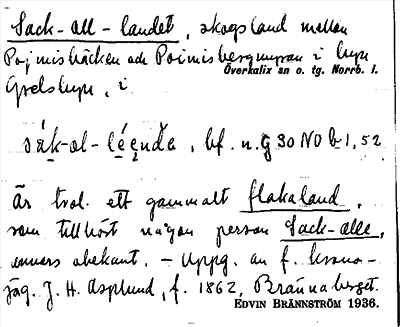 Sack-all-landet, skogsland mellan
Pojmisbäcken och Poimisbergmyran i byn
Överkalix sn o. tg. Norrb. l.
Grelsbyn, i
bf. n. G 30 NO b 1, 52
Är trol. ett gammalt flakaland,
som tillhört någon person Sack-alle,
annars obekant. - Uppg. av f. krono-
jäg. J. H. Asplund, f. 1862, Brännaberget.
EDVIN BRÄNNSTRÖM 1936.